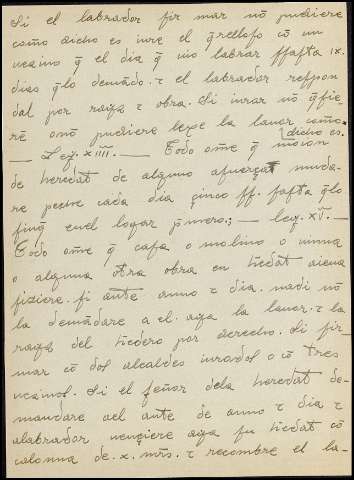 Si el labrador fir mar nõ pudiere
como dicho es iure el q̃relloso cõ un
ueçino q̃ el dia q̃ uio labrar ffasta ix.
dias q̃lo demãdo. τ el labrador respon
dal por rayz τ obra. Si iurar nõ q̃sie
re o nõ pudiere lexe la lauor como
dicho es.
— Ley. xiiii. — Todo ome q̃ moion
de heredat de alguno afuerça muda-
re peche cada dia çinco ss. fasta q̃lo
finq̃ enel logar p̃mero; — ley. xv. —
Todo ome q̃ casa o molino o uinna
o alguna otra obra en h̃edat aiena
fiziere. si ante anno τ dia. nadi nõ
la demãdare a el. aya la lauor. τ la
rayz del h̃edero por derecho. Si fir-
mar cõ dos alcaldes iurados o cõ tres
ueçinos. Si el señor dela heredat de-
mandare ael ante de anno τ dia τ
alabrador uençiere aya su h̃edat cõ
colonna de .x. mr̃s. τ recombre el la-